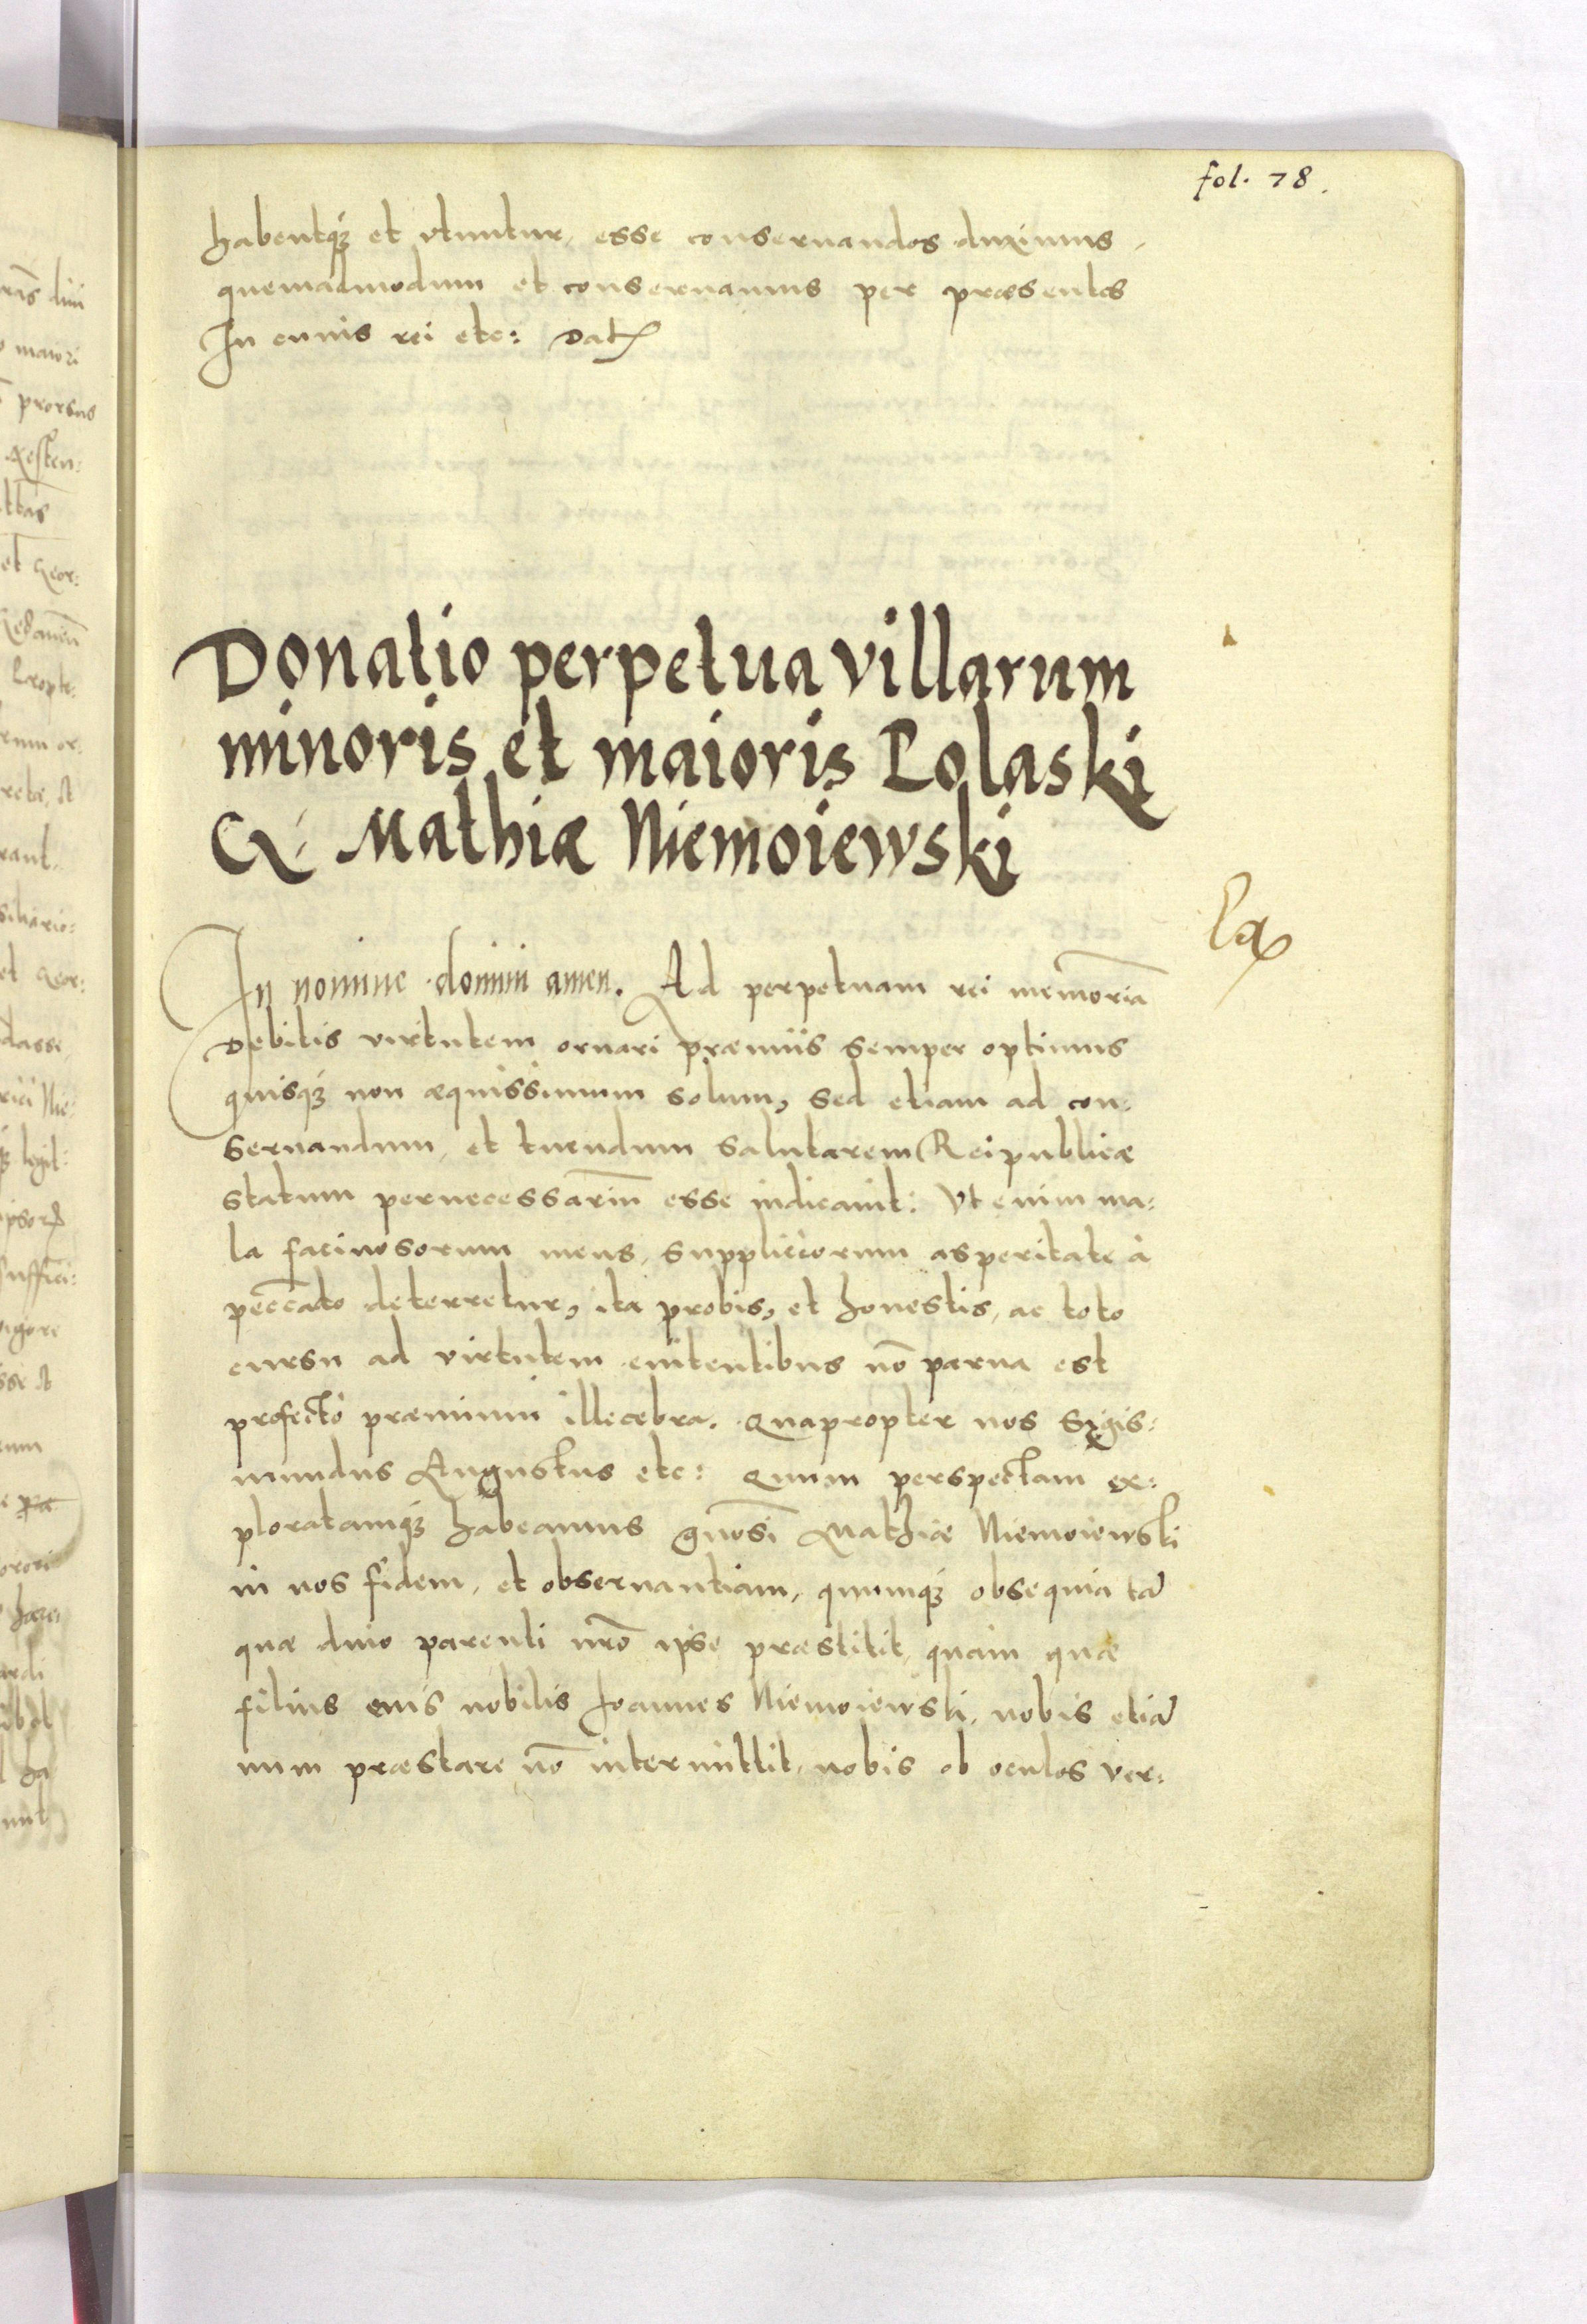 fol. 78.
habentq3 et vtuntur, esse conseruandos duximus,
quemadmodum et conseruamus per præsentes
In cuius rei etc: Dat
Donatio perpetua villarum
minoris et maioris Polaski
G. Mathiæ Niemoiewski
In nomine domini amen. Ad perpetuam rei memoriã
Debitis virtutem ornari præmiis semper optimus
quisq3 non æquissimum solum, sed etiam ad con:
seruandum, et tuendum salutarem Reipublicæ
statum pernecessariũ esse iudicauit: Vt enim ma:
la facinosorum mens, suppliciorum asperitate à
peccato deterretur, ita probis, et honestis, ac toto
cursu ad virtutem enitentibus nõ parua est
profectò præmium illecebra. Quapropter nos Sigis:
mundus Augustus etc: Quum perspectam ex:
ploratamq3 habeamus gnõsi Mathiæ Niemoiewski
in nos fidem, et obseruantiam, quumq3 obsequia tã
quæ diuo parenti nrõ ipse præstitit, quàm quæ
filius eius nobilis Joannes Niemoiewski, nobis etiã
num præstare nõ intermittit, nobis ob oculos ver: